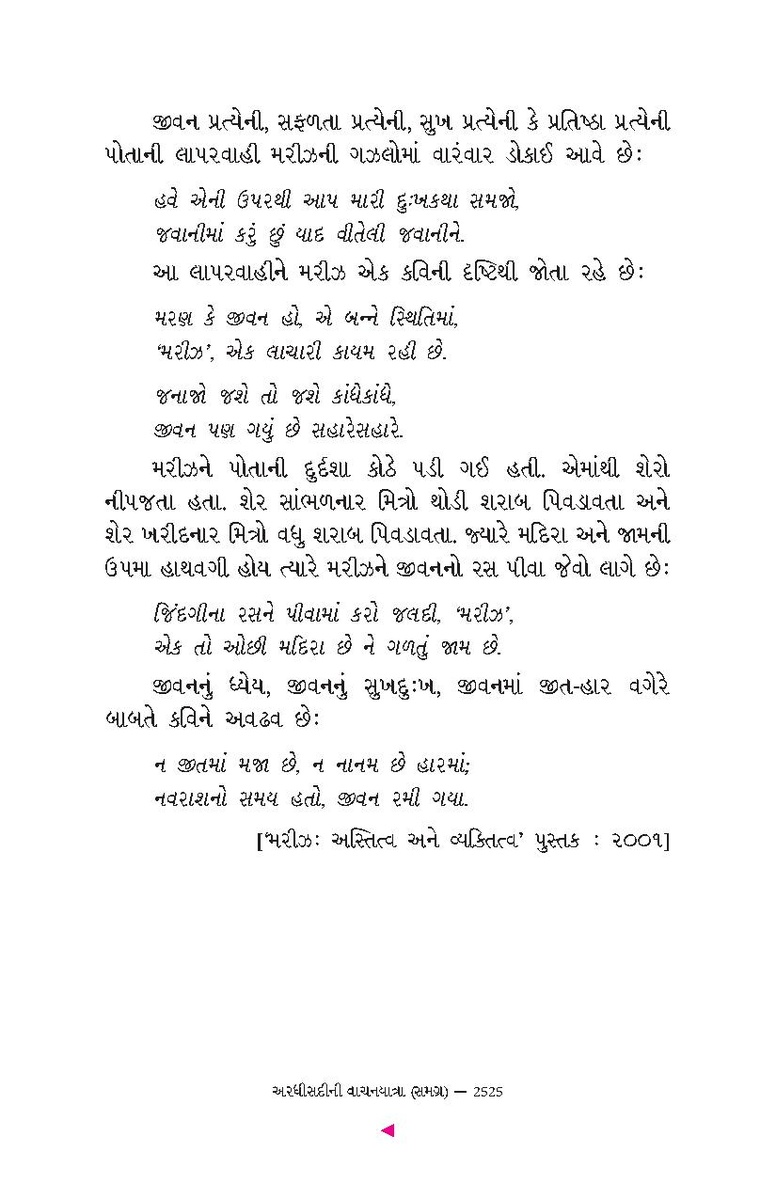 જીવન પ્રત્યેની, સફળતા પ્રત્યેની, સુખ પ્રત્યેની કે પ્રતિષ્ઠા પ્રત્યેની
પોતાની લાપરવાહી મરીઝની ગઝલોમાં વારંવાર ડોકાઈ આવે છેઃ
હવે એની ઉપરથી આપ મારી દુઃખકથા સમજો,
જવાનીમાં કરું છું યાદ વીતેલી જવાનીને.
આ લાપરવાહીને મરીઝ એક કવિની દૃષ્ટિથી જોતા રહે છેઃ
મરણ કે જીવન હો, એ બન્ને સ્થિતિમાં,
‘મરીઝ’, એક લાચારી કાયમ રહી છે.
જનાજો જશે તો જશે કાંધેકાંધે,
જીવન પણ ગયું છે સહારેસહારે.
મરીઝને પોતાની દુર્દશા કોઠે પડી ગઈ હતી. એમાંથી શેરો
નીપજતા હતા. શેર સાંભળનાર મિત્રો થોડી શરાબ પિવડાવતા અને
શેર ખરીદનાર મિત્રો વધુ શરાબ પિવડાવતા. જ્યારે મદિરા અને જામની
ઉપમા હાથવગી હોય ત્યારે મરીઝને જીવનનો રસ પીવા જેવો લાગે છેઃ
જિંદગીના રસને પીવામાં કરો જલદી, ‘મરીઝ’,
એક તો ઓછી મદિરા છે ને ગળતું જામ છે.
જીવનનું ધ્યેય, જીવનનું સુખદુઃખ, જીવનમાં જીત-હાર વગેરે
બાબતે કવિને અવઢવ છેઃ
ન જીતમાં મજા છે, ન નાનમ છે હારમાં;
નવરાશનો સમય હતો, જીવન રમી ગયા.
[‘મરીઝઃ અસ્તિત્વ અને વ્યક્તિત્વ’ પુસ્તક : ૨૦૦૧]
અરધીસદીની વાચનયાત્રા (સમગ્ર) — 2525